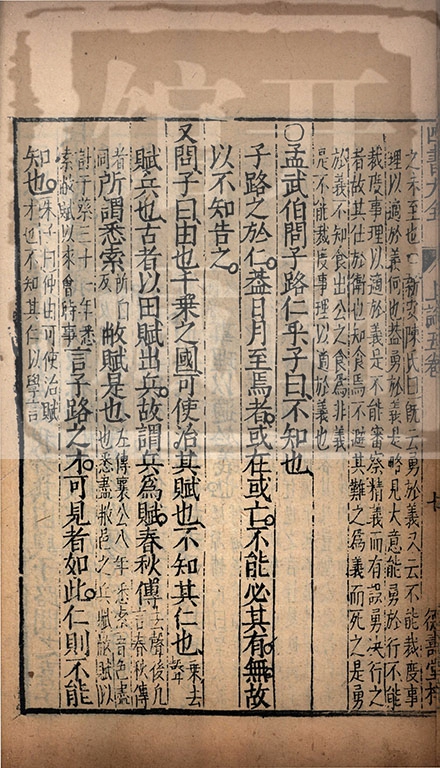 四書大全 上論五卷 德壽堂梓
之未至也○新安陳氏曰旣云勇於義又云不能裁度事
理以適於義何也蓋勇於義是略見大意能勇於行不能
裁度事理以適於義是不能審察精義而有誤勇決行之
者故其仕於衛也知食焉不避其難之為義而死之是勇
於義不知食出公之食為非義
是不能裁度事理以適於義也
○孟武伯問子路仁乎子曰不知也
子路之於仁蓋日月至焉者或在或亡不能必其有無故
以不知告之
又問子曰由也千乘之國可使治其賦也不知其仁也乘去聲
賦兵也古者以田賦出兵故謂兵為賦春秋傳去聲後凡言春秋傳
者同所謂悉索所白反敝賦是也左傳襄公八年悉索音色盡也悉盡敝邑之兵賦敝賦以
討于蔡三十一年悉索敝賦以來會時事言子路之才可見者如此仁則不能
知也朱子曰仲由可使治賦才也不知其仁以學言